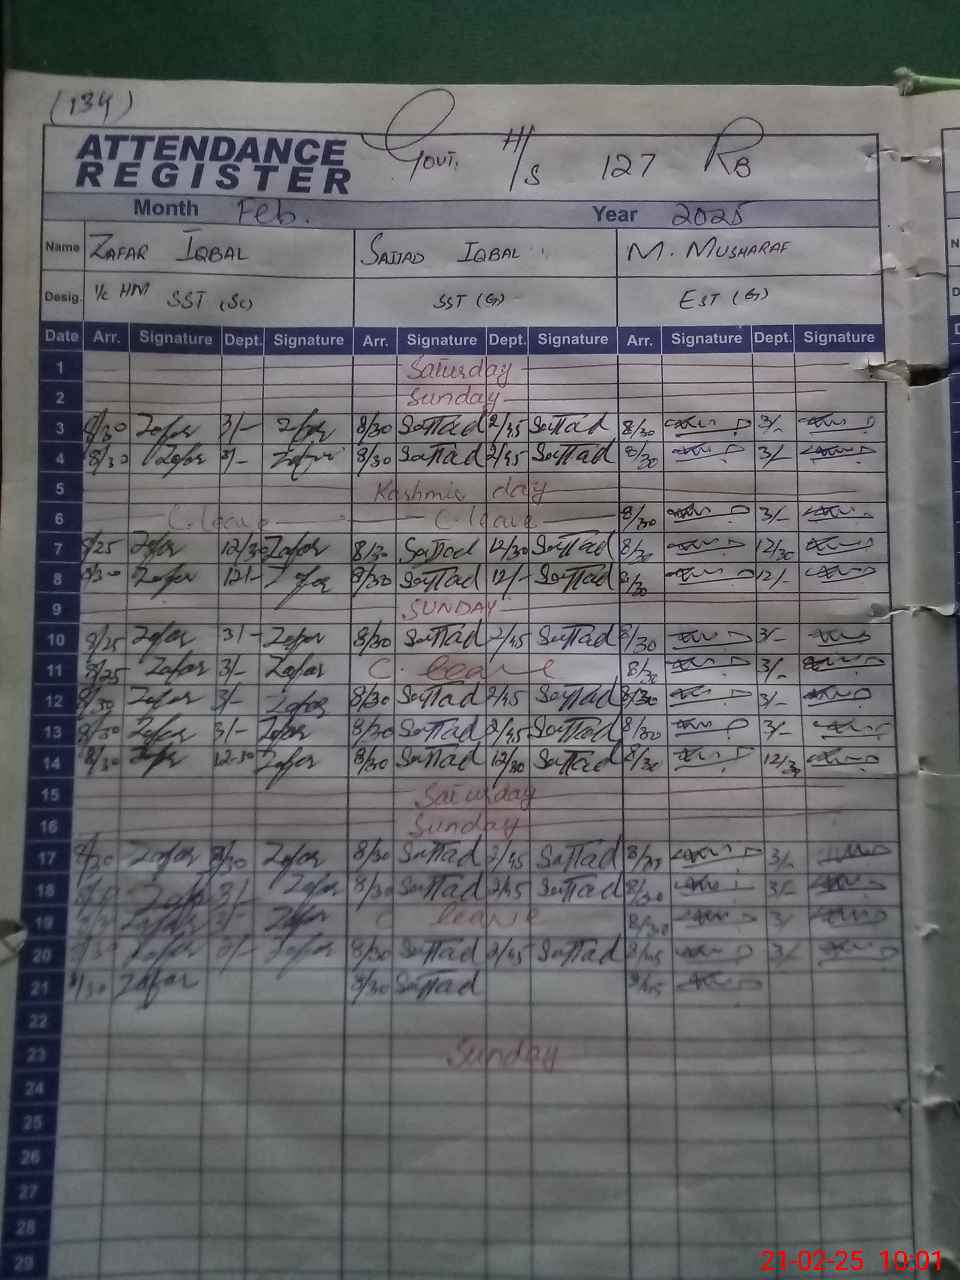 (134)
ATTENDANCE REGISTER Govt. H/S 127 RB
Month Feb. Year 2025
Name ZAFAR IQBAL SAJJAD IQBAL M. MUSHARAF
Desig. I/C HM SST (Sc) SST (G) EST (G)
Date Arr. Signature Dept. Signature Arr. Signature Dept. Signature Arr. Signature Dept. Signature
1 Saturday
2 Sunday
3 8/30 Zafar 3/- Zafar 8/30 Sajjad 2/45 Sajjad 8/30 3/-
4 8/30 Zafar 3/- Zafar 8/30 Sajjad 2/45 Sajjad 8/30 3/-
5 Kashmir day
6 C. leave C. leave 8/30 3/-
7 8/25 Zafar 12/30 Zafar 8/30 Sajjad 12/30 Sajjad 8/30 12/30
8 8/30 Zafar 12/- Zafar 8/30 Sajjad 12/- Sajjad 8/30 12/-
9 SUNDAY
10 8/25 Zafar 3/- Zafar 8/30 Sajjad 2/45 Sajjad 8/30 3/-
11 8/25 Zafar 3/- Zafar C. leave 8/30 3/-
12 8/30 Zafar 3/- Zafar 8/30 Sajjad 2/45 Sajjad 8/30 3/-
13 8/30 Zafar 3/- Zafar 8/30 Sajjad 2/45 Sajjad 8/30 3/-
14 8/30 Zafar 12-30 Zafar 8/30 Sajjad 12/30 Sajjad 8/30 12/30
15 Saturday
16 Sunday
17 8/30 Zafar Zafar 8/30 Sajjad 2/45 Sajjad 3/-
18 Zafar 3/- Zafar 8/30 Sajjad 2/45 Sajjad 8/30 3/-
19 Zafar 3/- Zafar C leave 8/30 3/-
20 Zafar 3/- Zafar 8/30 Sajjad 2/45 Sajjad 3/-
21 8/30 Zafar 8/30 Sajjad
22
23 Sunday
24
25
26
27
28
29
21-02-25 10:01